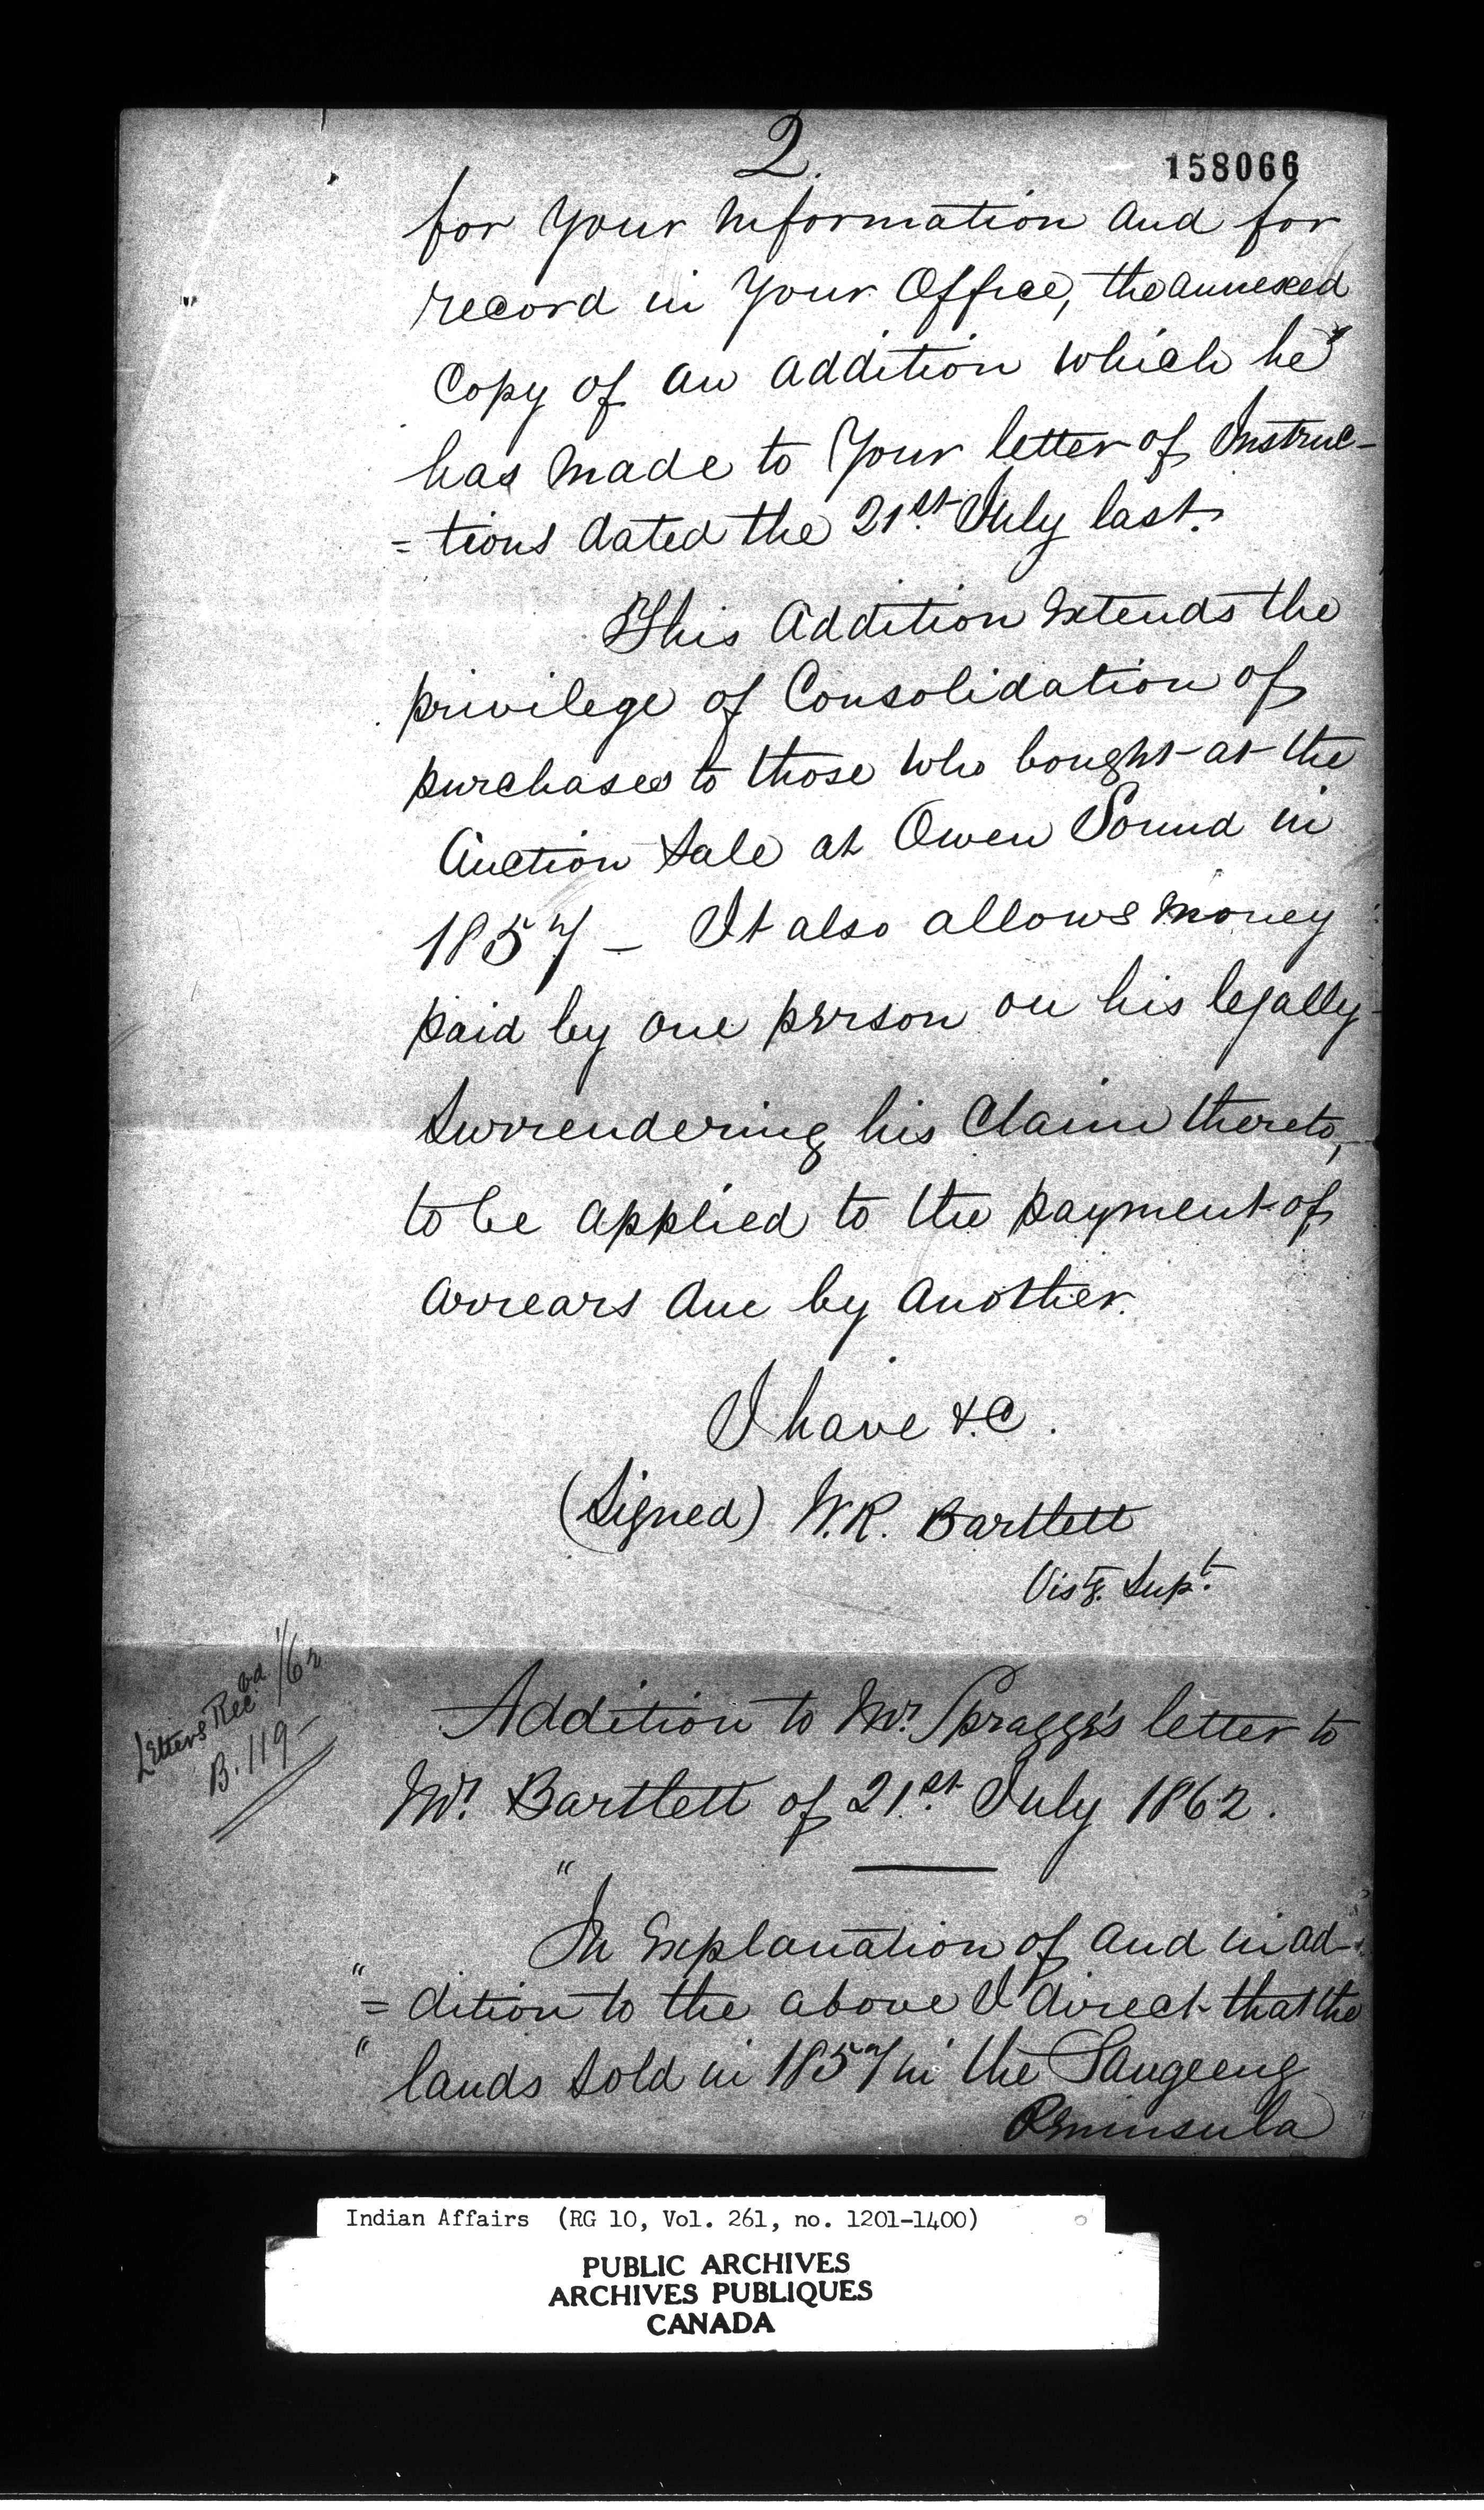 2.
158066
for your information and for
record in your Office, the annexed
Copy of an addition which he
has made to your letter of Instruc-
= tions dated the 21st July last.
This addition extends the
privilege of Consolidation of
purchases to those who bought at the
Auction Sale at Owen Sound in
1857 - It also allows money
paid by one person on his legally
surrendering his Claim thereto,
to be applied to the payment of
arrears due by another.
I have &c.
(Signed) W.R. Bartlett
Vistg. Supt.
Letters Recd 1/62
B. 119
Addition to Mr. Spragge's letter to
Mr. Bartlett of 21st July 1862.
"
In Explanation of and in ad-
" = dition to the above I direct that the
" lands sold in 1857 in the Saugeeng
Peninsula
Indian Affairs (RG 10, Vol. 261, no. 1201-1400)
PUBLIC ARCHIVES
ARCHIVES PUBLIQUES
CANADA